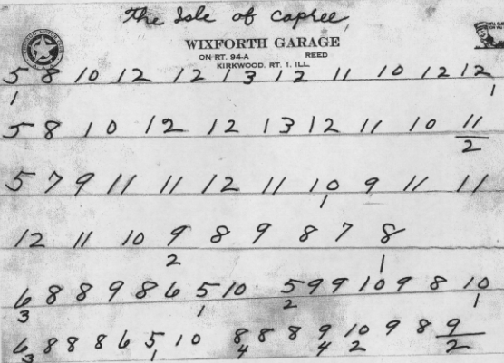 the Isle of Capree,
WIXFORTH GARAGE
ON RT. 94-A REED
KIRKWOOD. RT. 1. ILL.
5 8 10 12 12 13 12 11 10 12 12
1 1
5 8 10 12 12 13 12 11 10 11
2
5 7 9 11 11 12 11 10 9 11 11
1
12 11 10 9 8 9 8 7 8
2 1
6 8 8 9 8 6 5 10 5 9 9 10 9 8 10
3 1 2 1
6 8 8 8 6 5 10 8 8 8 9 10 9 8 9
3 1 4 4 2 2